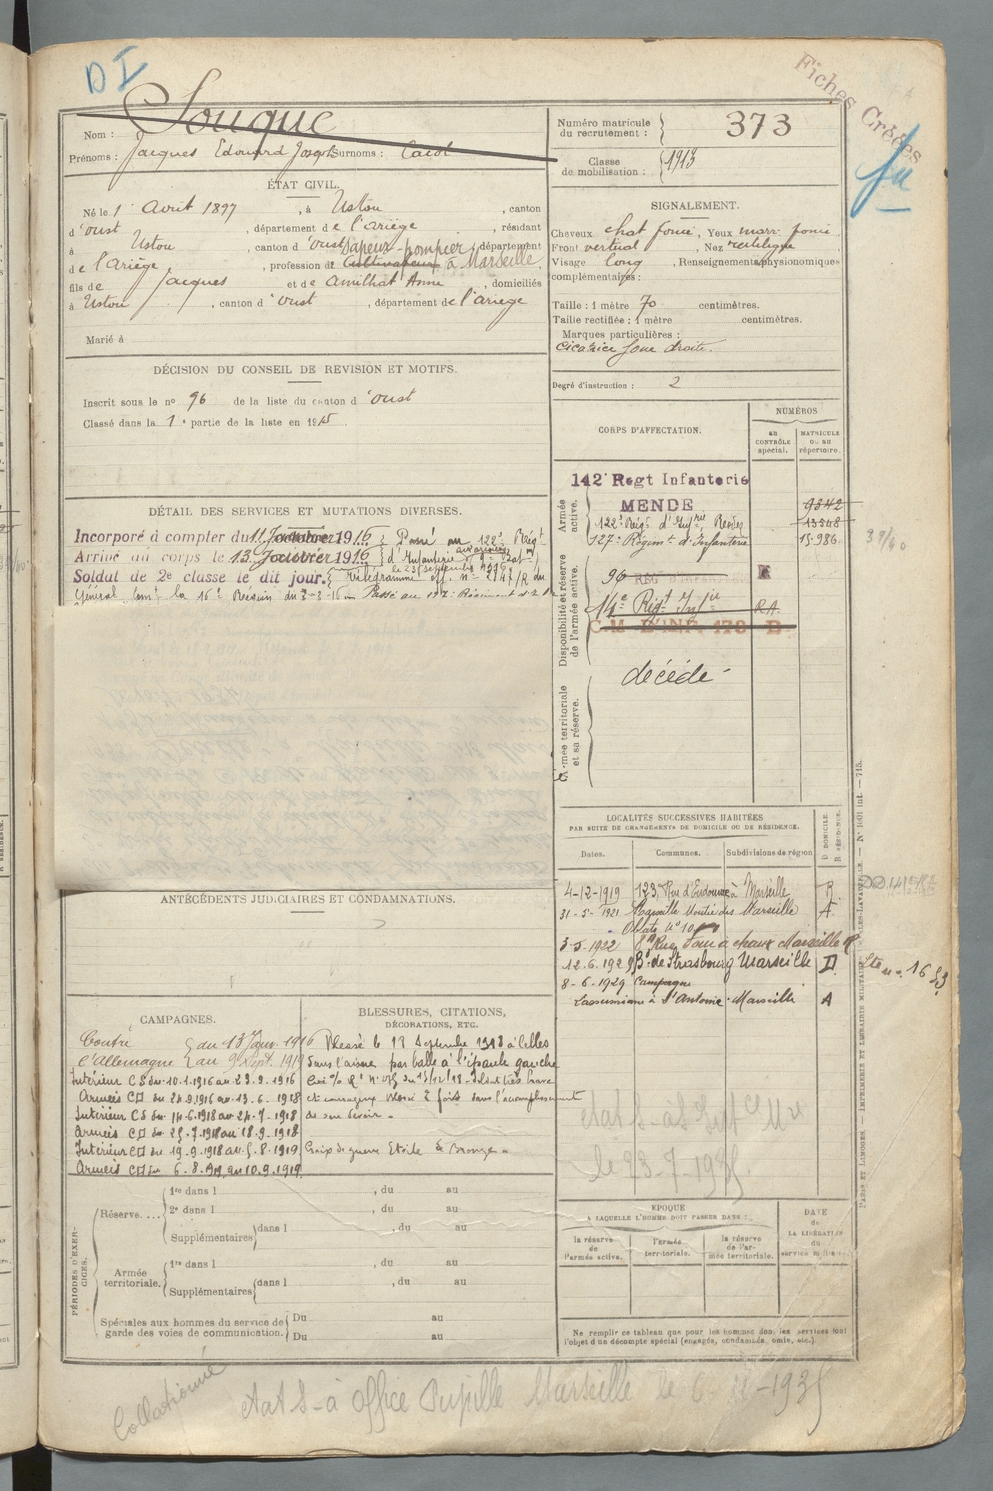 D I
Fiches Créées
Nom : Souque
Prénoms : Jacques Edouard Joseph Surnoms :
Numéro matricule du recrutement : 373
Classe de mobilisation : 1913
ÉTAT CIVIL.
Né le 1 Avril 1897, à Ustou, canton
d'Oust, département de l'Ariège, résidant
à Ustou, canton d'Oust, département
Sapeur-pompier
de l'Ariège, profession de Cultivateur à Marseille,
fils de Jacques et de Amilhat Anne, domiciliés
à Ustou, canton d'Oust, département de l'Ariège
Marié à
SIGNALEMENT.
Cheveux chat foncé, Yeux marr. foncé
Front vertical, Nez rectiligne
Visage long, Renseignements physionomiques
complémentaires :
Taille : 1 mètre 70 centimètres.
Taille rectifiée : 1 mètre centimètres.
Marques particulières :
Cicatrice joue droite.
Degré d'instruction : 2
DÉCISION DU CONSEIL DE REVISION ET MOTIFS.
Inscrit sous le no 96 de la liste du canton d'Oust
Classé dans la 1e partie de la liste en 1915.
DÉTAIL DES SERVICES ET MUTATIONS DIVERSES.
Incorporé à compter du 11 Janvier 1916 Passé au 122e Régt
Arrivé au corps le 13 Janvier 1916 d'Infanterie
Soldat de 2e classe le dit jour. Télégramme off. no 2147/R du
Général Comt la 16e Région du 3-3-16 Passé au 127e Régiment d'I.
CORPS D'AFFECTATION.
NUMÉROS
au contrôle spécial.
MATRICULE ou au répertoire.
Armée active.
142e Regt Infanterie
MENDE
9342
122e Régt d'Infrie Rodez
13548
127e Régimt d'Infanterie
15.986
39/40
Disponibilité et réserve de l'armée active.
96 REGt
14e Régt Infie R.A.
C.M. D'INF. 173 B
décédé
Armée territoriale et sa réserve.
LOCALITÉS SUCCESSIVES HABITÉES
PAR SUITE DE CHANGEMENTS DE DOMICILE OU DE RÉSIDENCE.
Dates.
Communes.
Subdivisions de région
D DOMICILE.
R RÉSIDENCE.
4-12-1919 123, Rue d'Endoume à Marseille R
31-5-1921 Marseille Montée des Marseille
Oblats no 10
3-5-1922 8 Rue Four à chaux Marseille R
12.6.1929 Bd de Strasbourg Marseille D
8-6-1929 Campagne
à St Antoine Marseille A
ANTÉCÉDENTS JUDICIAIRES ET CONDAMNATIONS.
CAMPAGNES.
Contre du 13 Janv. 1916
l'Allemagne au 9 Sept. 1919
Intérieur CS du 10.1.1916 au 23.9.1916
Armées CD du 24.9.1916 au 13.6.1918
Intérieur CS du 14.6.1918 au 24.7.1918
Armées CD du 25.7.1918 au 18.9.1918
Intérieur CD du 19.9.1918 au 5.8.1919
Armées CD du 6.8.1919 au 10.9.1919
BLESSURES, CITATIONS, DÉCORATIONS, ETC.
Blessé le 18 Septembre 1918 à
dans l'Aisne par balle à l'épaule gauche
Cité O. R. du 15/12/18 Soldat très brave
et courageux blessé 2 fois dans l'accomplissement
de son devoir.
Croix de guerre Etoile de bronze.
Etat S-à
le 23-7-1935
PÉRIODES D'EXERCICES.
Réserve....
1re dans l , du au
2e dans l , du au
Supplémentaires dans l , du au
Armée territoriale.
1re dans l , du au
Supplémentaires dans l , du au
Spéciales aux hommes du service de garde des voies de communication.
Du au
Du au
EPOQUE
A LAQUELLE L'HOMME DOIT PASSER DANS :
la réserve de l'armée active.
l'armée territoriale.
la réserve de l'armée territoriale.
DATE de LA LIBÉRATION du service militaire.
Ne remplir ce tableau que pour les hommes dont les services font
l'objet d'un décompte spécial (engagés, condamnés, omis, etc.).
Collationné
Etat S-à Office Pupille Marseille le 6-11-1935